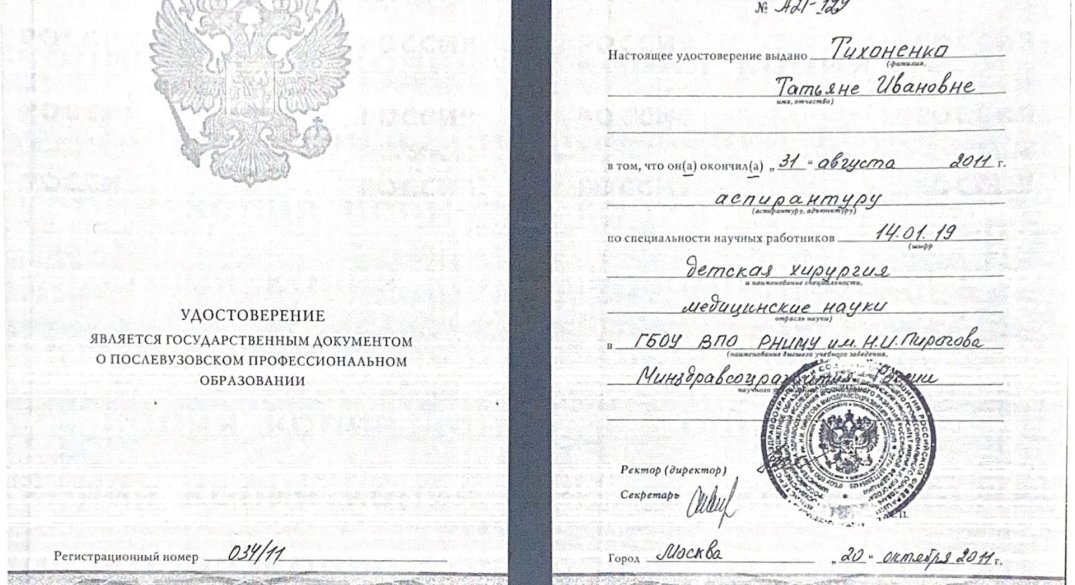 УДОСТОВЕРЕНИЕ
ЯВЛЯЕТСЯ ГОСУДАРСТВЕННЫМ ДОКУМЕНТОМ
О ПОСЛЕВУЗОВСКОМ ПРОФЕССИОНАЛЬНОМ
ОБРАЗОВАНИИ
Регистрационный номер 034/11
№ А21-129
Настоящее удостоверение выдано Тихоненко
(фамилия,
Татьяне Ивановне
имя, отчество)
в том, что он(а) окончил(а) „ 31 “ августа 2011 г.
аспирантуру
(аспирантуру, адъюнктуру)
по специальности научных работников 14.01.19
(шифр
детская хирургия
и наименование специальности,
медицинские науки
отрасль науки)
в ГБОУ ВПО РНИМУ им. Н.И. Пирогова
(наименование высшего учебного заведения,
Минздравсоцразвития России
научного
Ректор (директор)
Секретарь
Город Москва „ 20 “ октября 2011 г.